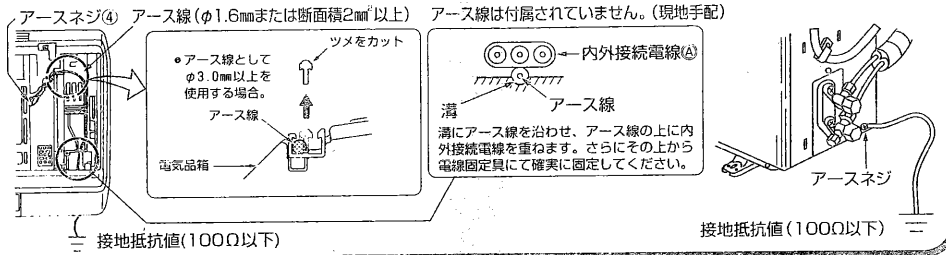 アースネジ④ アース線(φ1.6mmまたは断面積2mm²以上) アース線は付属されていません。(現地手配)
●アース線として
φ3.0mm以上を
使用する場合。
ツメをカット
アース線
電気品箱
内外接続電線Ⓐ
溝
アース線
溝にアース線を沿わせ、アース線の上に内
外接続電線を重ねます。さらにその上から
電線固定具にて確実に固定してください。
アースネジ
接地抵抗値(100Ω以下)
接地抵抗値(100Ω以下)